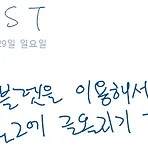 ST
29일 일요일
블렛을 이용해서
에 글오리기